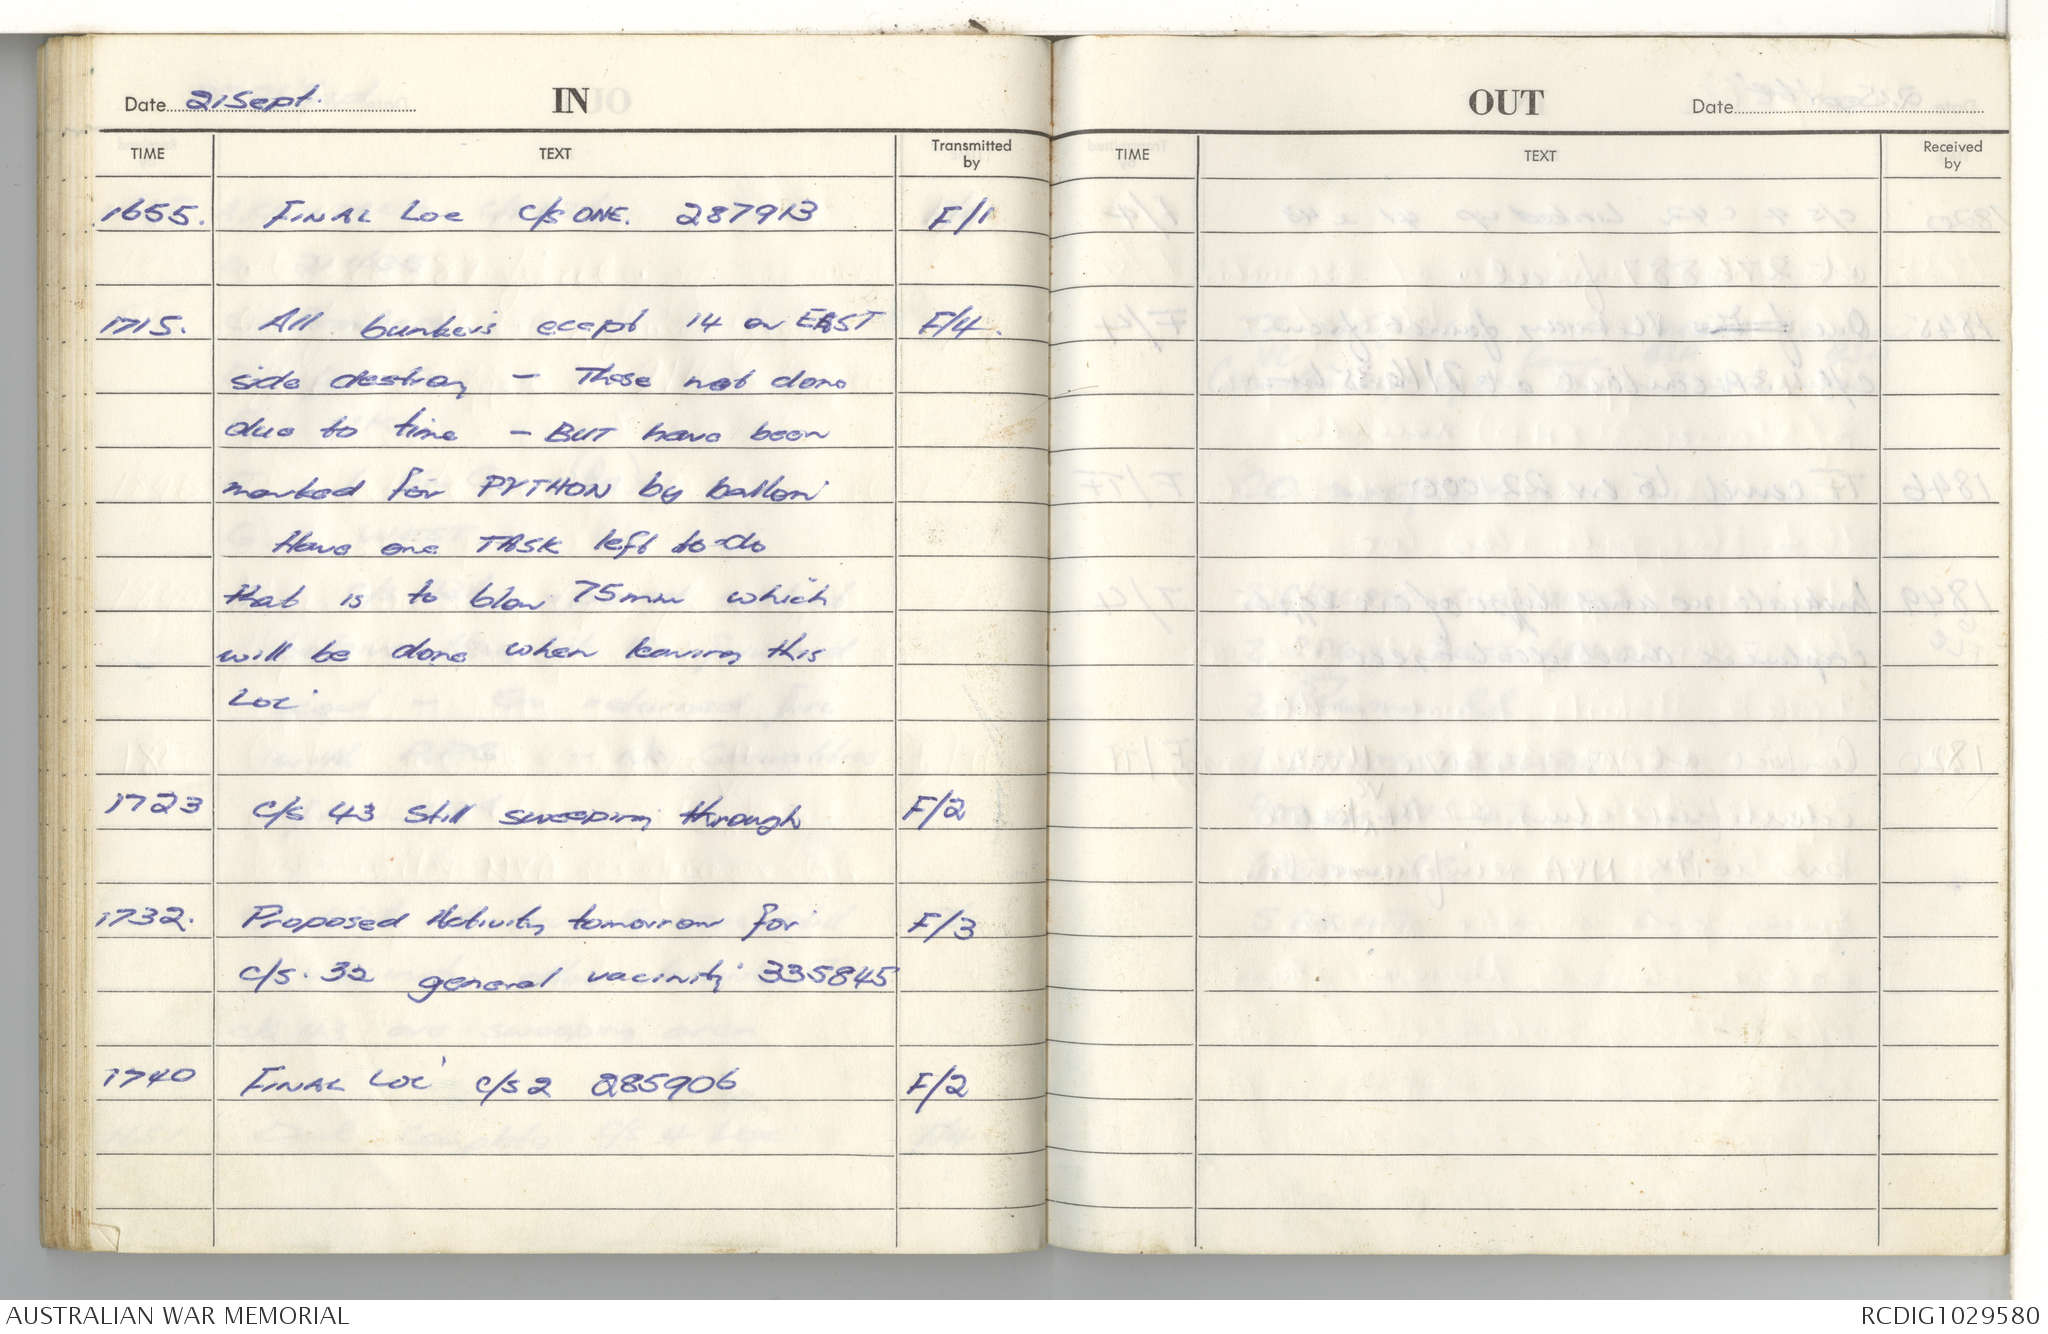 Date 21 Sept.
IN
TIME TEXT Transmitted by
1655. FINAL Loc C/S ONE. 287913 F/1
1715. All bunkers ecept 14 on EAST F/4.
side destroy - These not done
due to time - BUT have been
marked for PYTHON by ballon
Have one TASK left to do
that is to blow 75mm which
will be done when leaving this
Loc
1723 C/S 43 Still sweeping through F/2
1732. Proposed Activity tomorrow for F/3
C/S. 32 general vacinity 335845
1740 FINAL LOC C/S 2 285906 F/2
OUT
Date
TIME TEXT Received by
AUSTRALIAN WAR MEMORIAL
RCDIG1029580